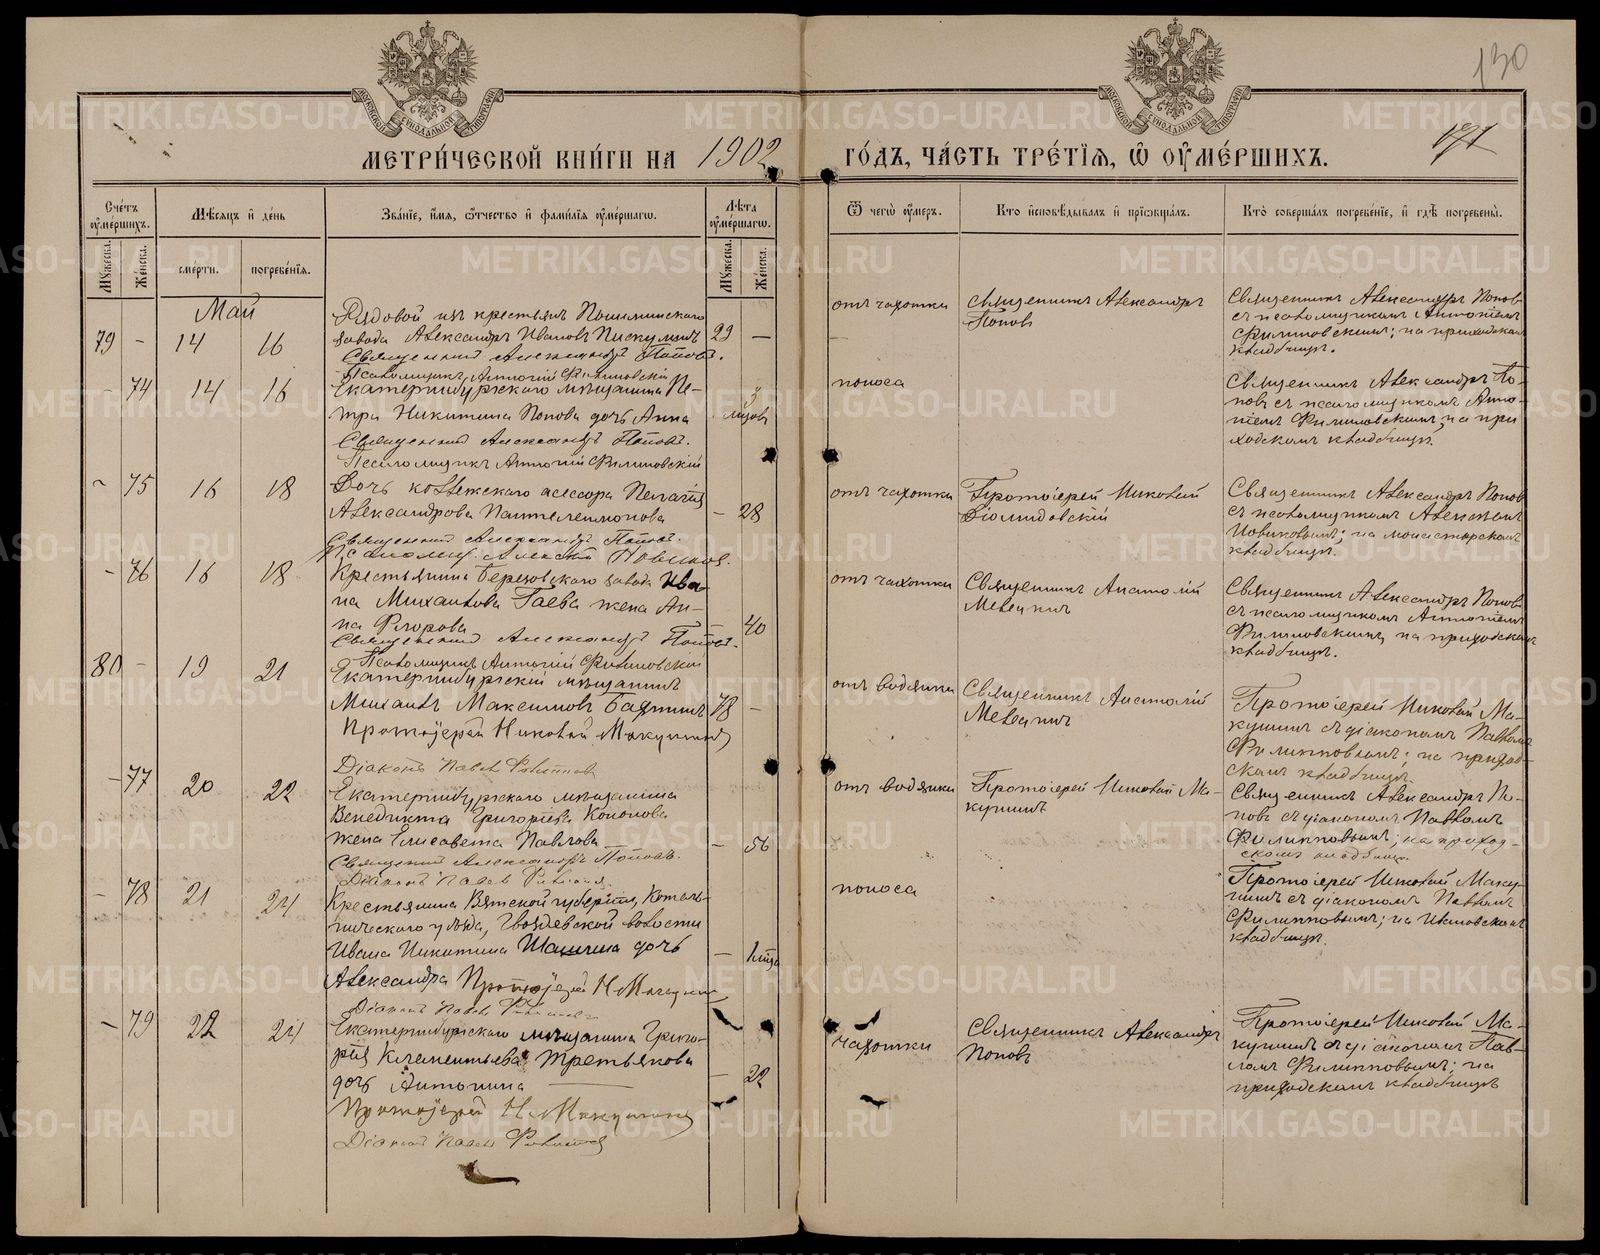 130
191
МЕТРИ́ЧЕСКОЙ КНИ́ГИ НА 1902 ГО́ДЪ, ЧА́СТЬ ТРЕ́ТІѦ, Ѿ ОУ҆МЕ́РШИХЪ.
Счетъ оу҆ме́ршихъ.
Мꙋжеска.
Же́нска.
Мѣсяцъ и҆ де́нь
сме́рти.
погребе́нїѧ.
Зва́нїе, и҆́мѧ, ѻ҆́тчество и҆ фами́лїѧ оу҆ме́ршагѡ.
Лѣ́та оу҆ме́ршагѡ.
Мꙋжеска.
Же́нска.
Ѿ чегѡ̀ оу҆́меръ.
Кто̀ и҆сповѣ́дывалъ и҆ прїѡбща́лъ.
Кто̀ соверша́лъ погребе́нїе, и҆ гдѣ̀ погребены̀.
Май
79 - 14 16
Рядовой изъ крестьянъ Пышминскаго
завода Александръ Ивановъ Пискуновъ 23 —
Священникъ Александръ Поповъ.
Псаломщикъ Антоній Филиповскій
отъ чахотки
Священникъ Александръ
Поповъ
Священникъ Александръ Поповъ
съ псаломщикомъ Антоніемъ
Филиповскимъ; на приходскомъ
кладбищѣ.
- 74 14 16
Екатеринбургскаго мѣщанина Пе-
тра Никитина Попова дочь Анна 3 мѣсяц.
Священникъ Александръ Поповъ.
Псаломщикъ Антоній Филиповскій
поноса
Священникъ Александръ По-
повъ съ псаломщикомъ Анто-
ніемъ Филиповскимъ, на при
ходскомъ кладбищѣ.
- 75 16 18
Дочь коллежскаго асессора Пелагія
Александрова Пантелеймонова - 28
Священникъ Александръ Поповъ.
Псаломщ. Алексѣй Новиковъ.
отъ чахотки
Протоіерей Николай
Діомидовскій
Священникъ Александръ Поповъ
съ псаломщикомъ Алексѣемъ
Новиковымъ; на монастырскомъ
кладбищѣ.
- 76 16 18
Крестьянина Березовскаго завода Ива-
на Михайлова Гаева жена Ан-
на Егорова 40
Священникъ Александръ Поповъ.
Псаломщикъ Антоній Филиповскій
отъ чахотки
Священникъ Анатолій
Священникъ Александръ Поповъ
съ псаломщикомъ Антоніемъ
Филиповскимъ, на приходскомъ
кладбищѣ.
80 - 19 21
Екатеринбургскій мѣщанинъ
Михаилъ Максимовъ 78 -
Протоіерей Николай Макушинъ
Діаконъ Павелъ Филипповъ
отъ водянки
Священникъ Анатолій
Протоіерей Николай Ма-
кушинъ съ діакономъ Павломъ
Филипповымъ; на приход-
скомъ кладбищѣ.
- 77 20 22
Екатеринбургскаго мѣщанина
Венедикта Григорьева Кононова
жена Елисавета Павлова - 56
Священникъ Александръ Поповъ.
Діаконъ Павелъ Филипповъ
отъ водянки
Протоіерей Николай Ма-
кушинъ
Священникъ Александръ По-
повъ съ діакономъ Павломъ
Филипповымъ; на приход-
скомъ кладбищѣ.
- 78 21 24
Крестьянина Вятской губерніи, Котель-
ническаго уѣзда, Гвоздевской волости
Ивана Никитина дочь - 1 мѣсяц.
Александра Протоіерей Н. Макушинъ
Діаконъ Павелъ Филипповъ
поноса
Протоіерей Николай Маку-
шинъ съ діакономъ Павломъ
Филипповымъ; на Ивановскомъ
кладбищѣ.
- 79 22 24
Екатеринбургскаго мѣщанина Григо-
рія Клементьева Третьякова
дочь Антонина - 22
Протоіерей Н. Макушинъ
Діаконъ Павелъ Филипповъ
чахотки
Священникъ Александръ
Поповъ
Протоіерей Николай Ма-
кушинъ съ діакономъ Пав-
ломъ Филипповымъ; на
приходскомъ кладбищѣ
METRIKI.GASO-URAL.RU